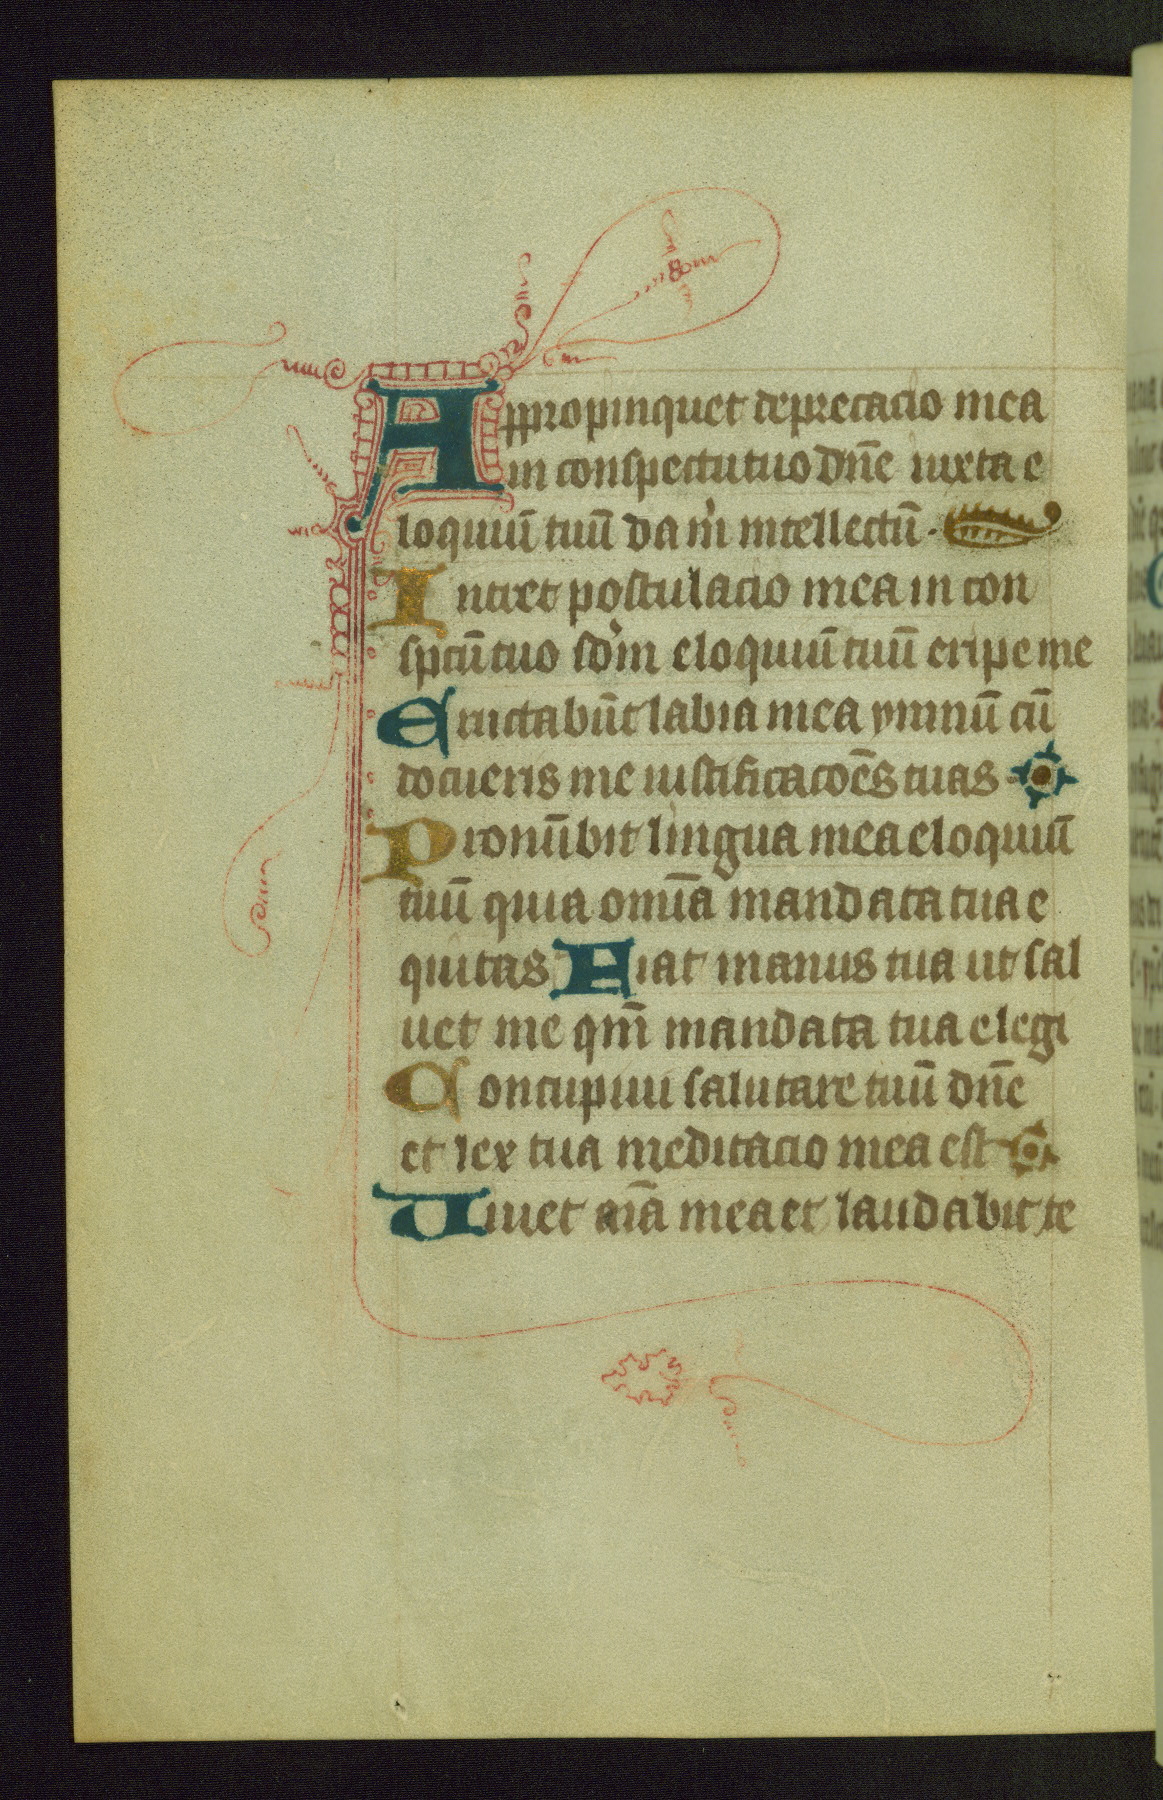 Appropinquet deprecacio mea
in conspectu tuo dn̄e iuxta e
loquiū tuū da m̍ intellectū.
Intret postulacio mea in con
spctū tuo sd̍m eloquiū tuū eripe me
Eructabūt labia mea ymnū cū
docueris me iustificacōēs tuas
Pronūbit lingua mea eloquiū
tuū quia omīa mandata tua e
quitas Fiat manus tua ut sal
uet me qm̄ mandata tua elegi
Concupiui salutare tuū dn̄e
et lex tua meditacio mea est
Uiuet aīa mea et laudabit te